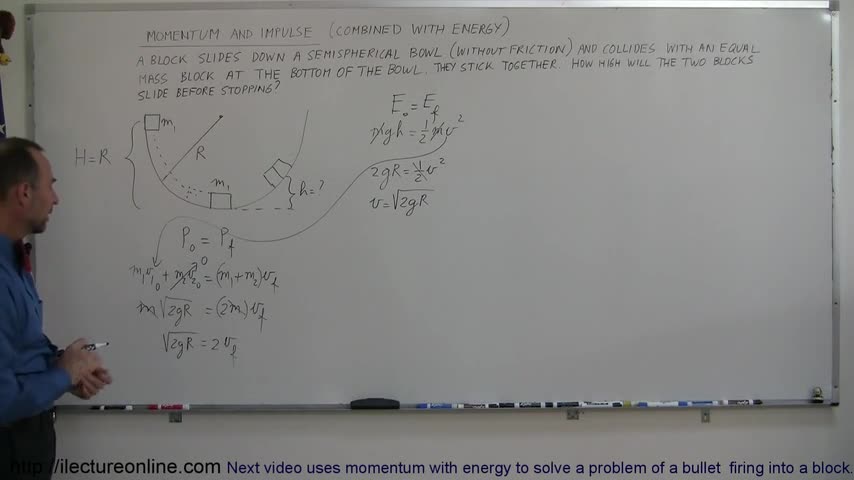 MOMENTUM AND IMPULSE (COMBINED WITH ENERGY)
A BLOCK SLIDES DOWN A SEMISPHERICAL BOWL (WITHOUT FRICTION) AND COLLIDES WITH AN EQUAL
MASS BLOCK AT THE BOTTOM OF THE BOWL. THEY STICK TOGETHER. HOW HIGH WILL THE TWO BLOCKS
SLIDE BEFORE STOPPING?
m₁
H=R
R
m₁
h=?
E₀ = E_f
mgh = ½mv²
2gR = ½v²
v = √2gR
P₀ = P_f
m₁v₁₀ + m₂v₂₀ = (m₁+m₂)v_f
0
m√2gR = (2m)v_f
√2gR = 2v_f
http://ilectureonline.com Next video uses momentum with energy to solve a problem of a bullet firing into a block.